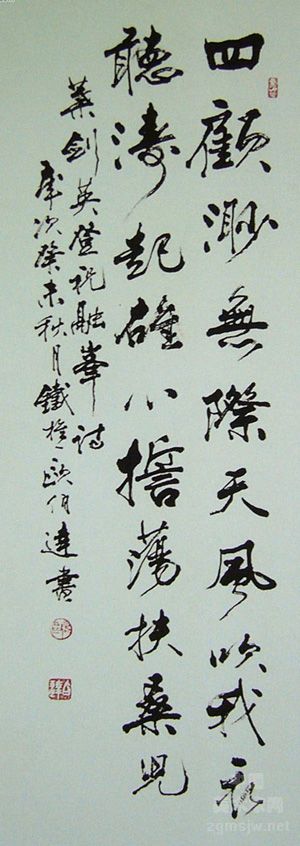 四顧渺無際天風吹我衣
聽濤起雄心誓蕩扶桑兒
葉劍英登祝融峯詩
歲次癸未秋月鐵歐伯達書
zgmsjw.net